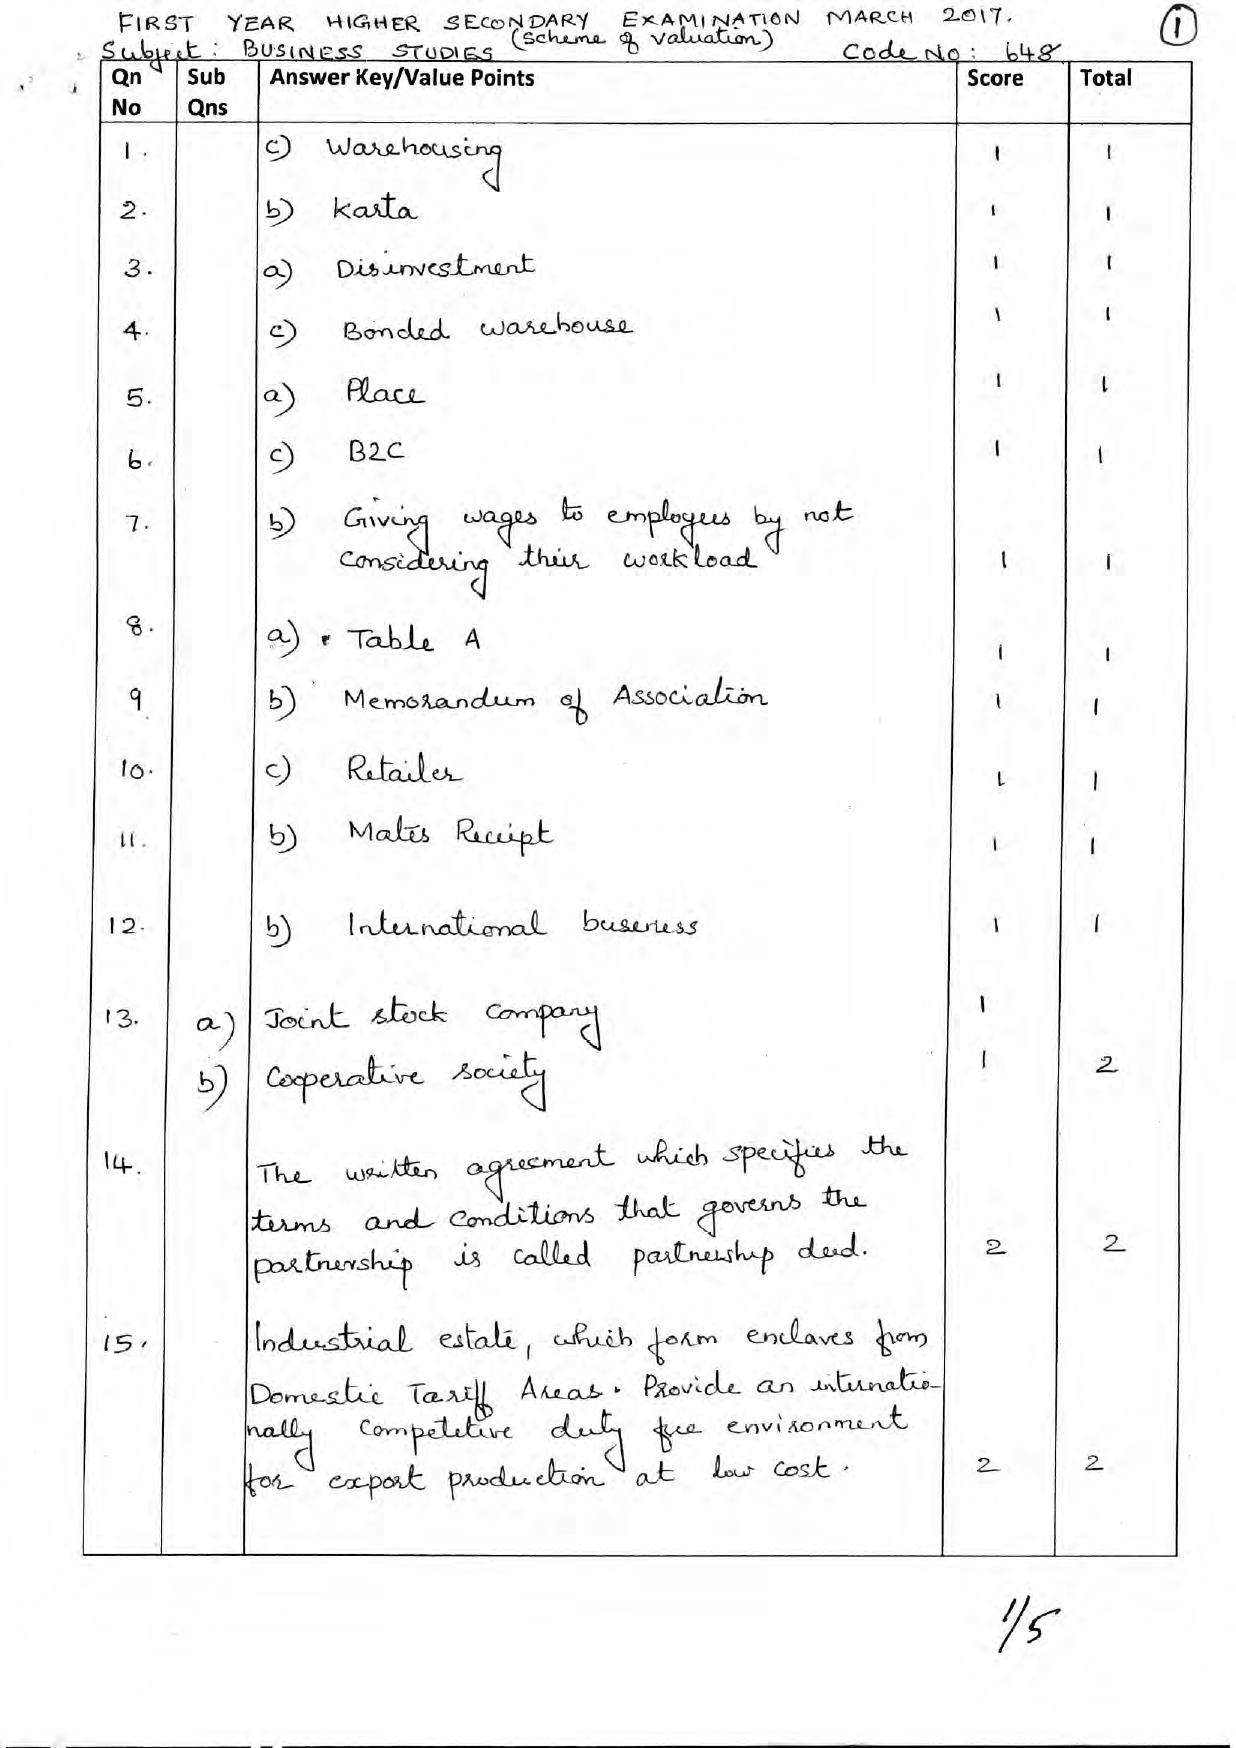 FIRST YEAR HIGHER SECONDARY EXAMINATION MARCH 2017. 1
Subject : BUSINESS STUDIES (Scheme of Valuation) Code No : 648
Qn No Sub Qns Answer Key/Value Points Score Total
1. c) Warehousing 1 1
2. b) Karta 1 1
3. a) Disinvestment 1 1
4. c) Bonded warehouse 1 1
5. a) Place 1 1
6. c) B2C 1 1
7. b) Giving wages to employees by not
considering their workload 1 1
8. a) Table A 1 1
9 b) Memorandum of Association 1 1
10. c) Retailer 1 1
11. b) Mates Receipt 1 1
12. b) International business 1 1
13. a) Joint stock company 1
b) Cooperative society 1 2
14. The written agreement which specifies the
terms and conditions that governs the
partnership is called partnership deed. 2 2
15. Industrial estate, which form enclaves from
Domestic Tariff Areas. Provide an internatio-
nally competetive duty free environment
for export production at low cost. 2 2
1/5